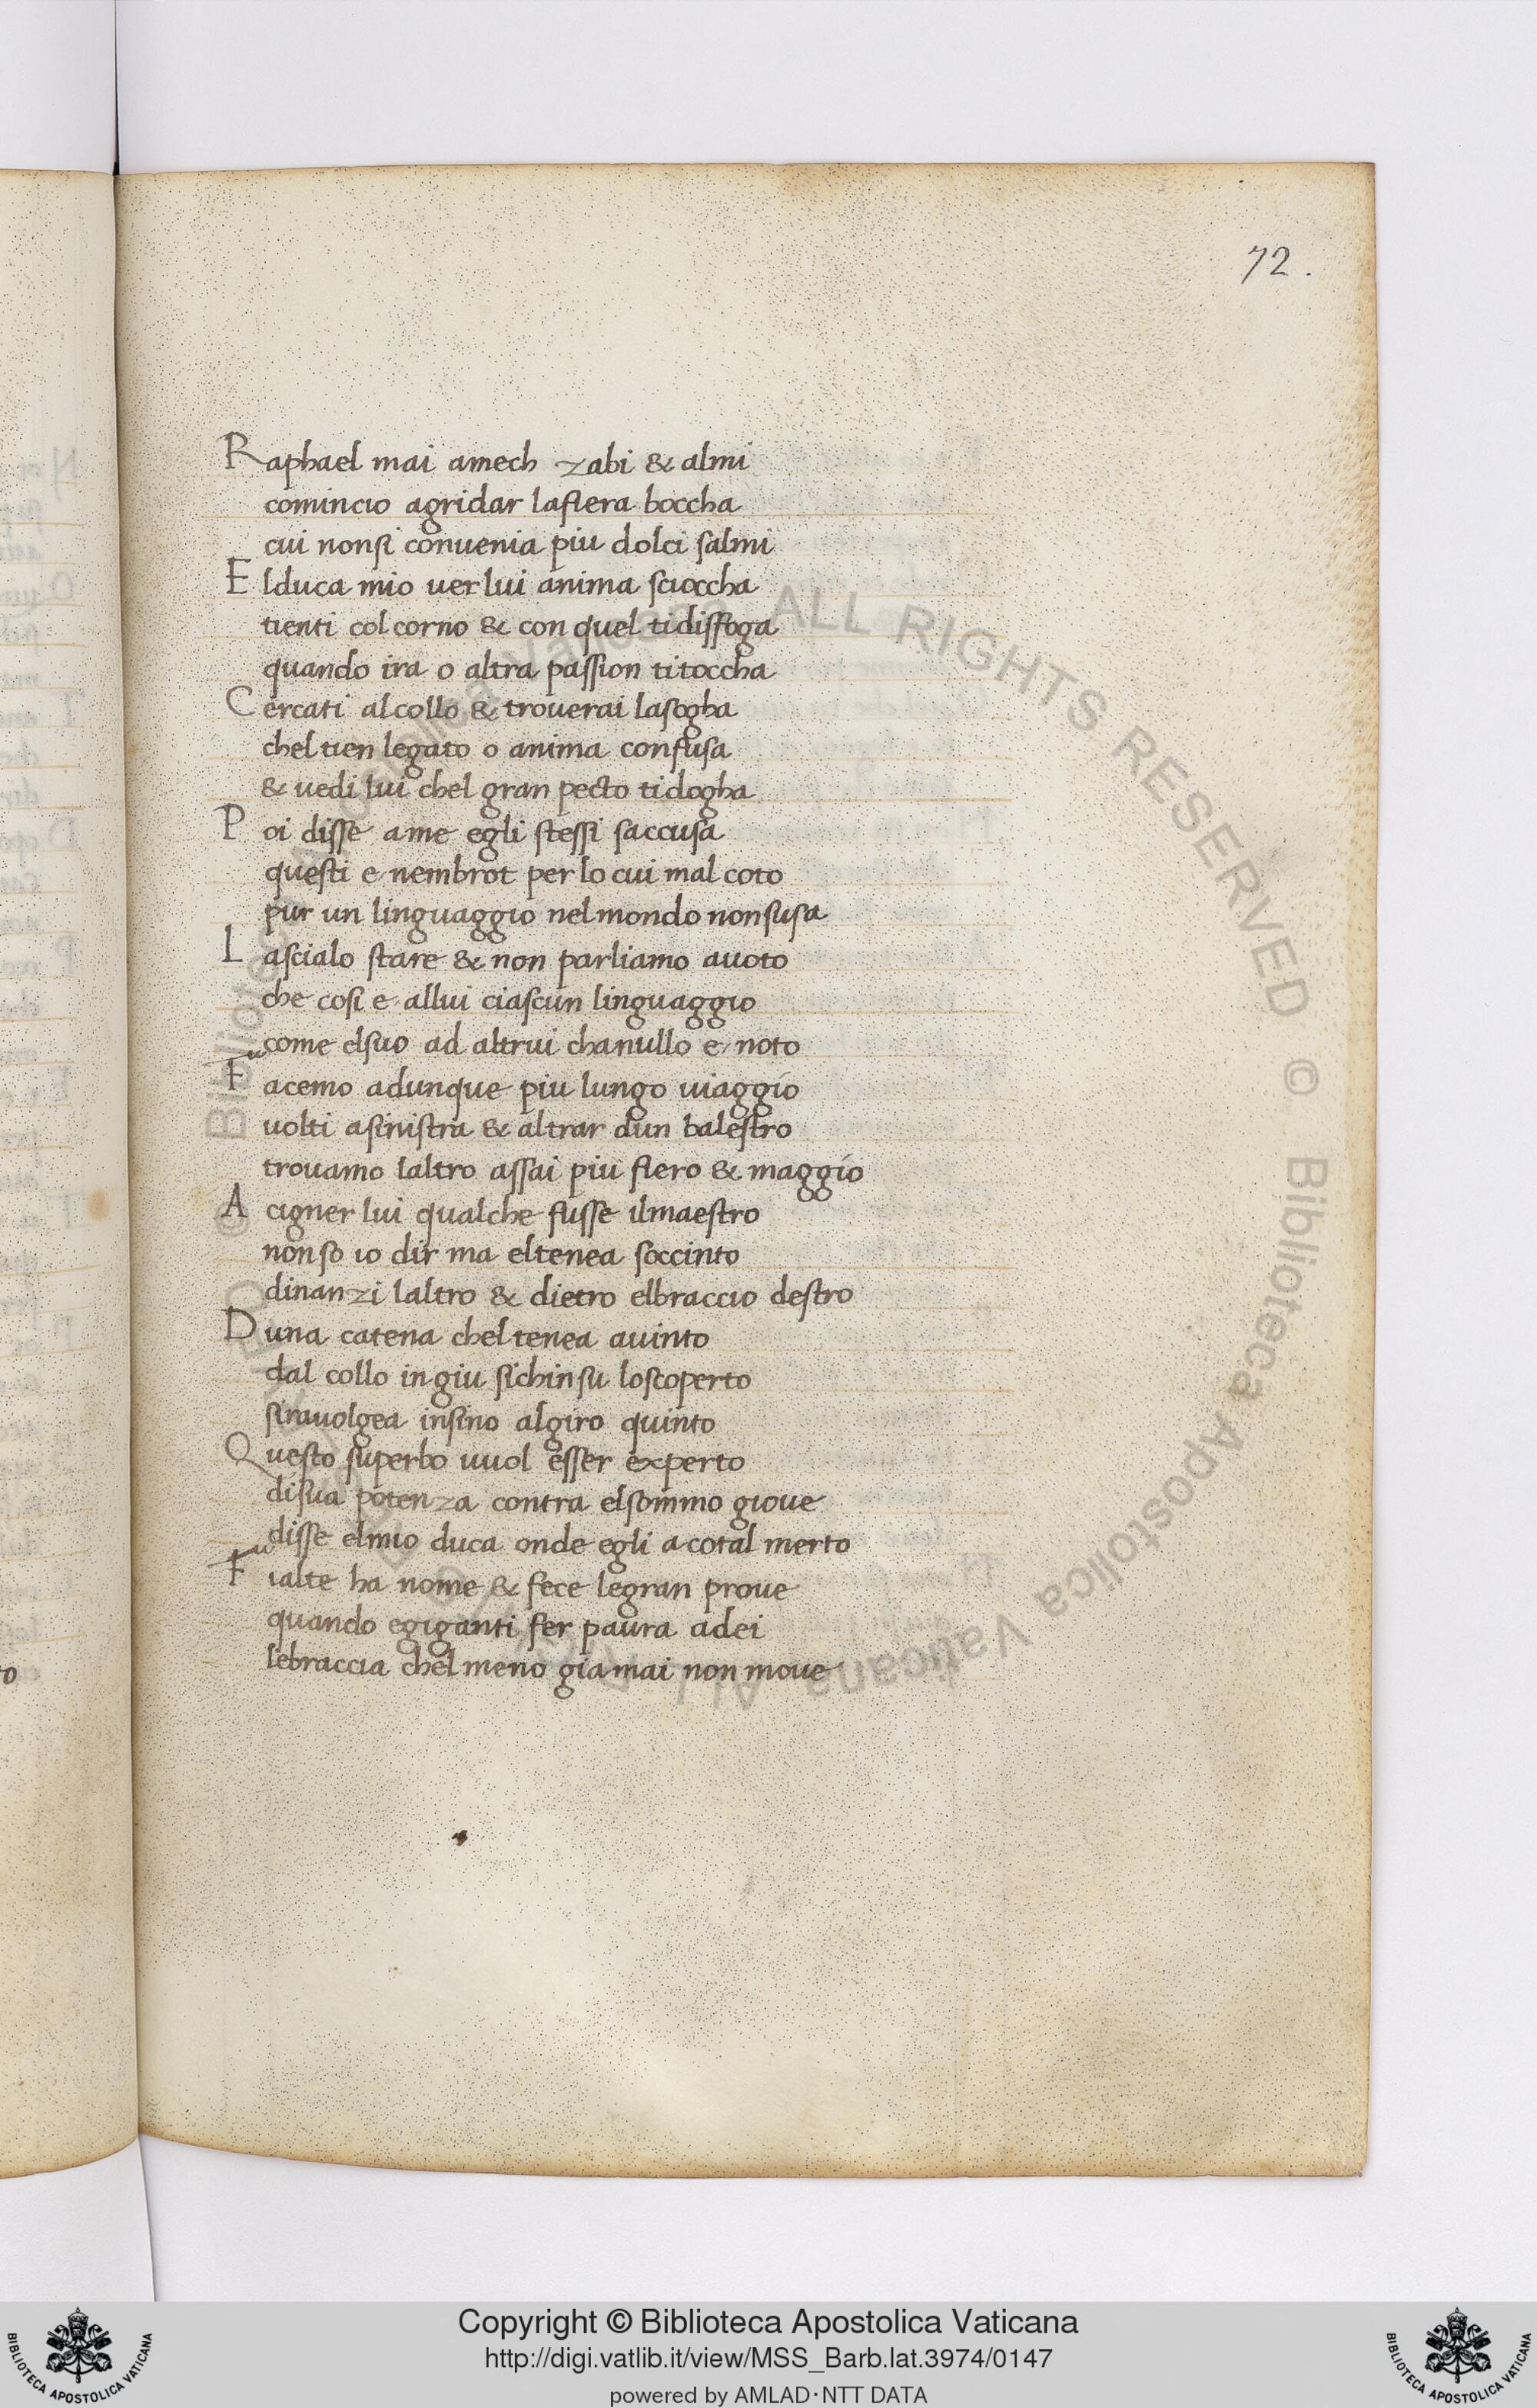 72.
Raphael mai amech zabi & almi
comincio agridar lafiera boccha
cui nonsi conuenia piu dolci salmi
Elduca mio uer lui anima scioccha
tienti col corno & con quel tidisfoga
quando ira o altra passion titoccha
Cercati alcollo & trouerai lasogha
chel tien legato o anima confusa
& uedi lui chel gran pecto tidogha
Poi disse ame egli stessi saccusa
questi e nembrot per lo cui mal coto
pur un linguaggio nelmondo nonsusa
Lascialo stare & non parliamo auoto
che cosi e allui ciascun linguaggio
come elsuo ad altrui chanullo e noto
Facemo adunque piu lungo uiaggio
uolti asinistra & altrar dun balestro
trouamo laltro assai piu fiero & maggio
A cigner lui qualche fusse ilmaestro
non so io dir ma eltenea soccinto
dinanzi laltro & dietro elbraccio destro
Duna catena cheltenea auinto
dal collo ingiu sichinsu loscoperto
sirauolgea insino algiro quinto
Questo superbo uuol esser experto
disua potenza contra elsommo gioue
disse elmio duca onde egli a cotal merto
Fialte ha nome & fece legran proue
quando egiganti fer paura adei
lebraccia chel meno giamai non moue
to
© Biblioteca Apostolica Vaticana ALL RIGHTS RESERVED © Biblioteca Apostolica Vaticana ALL RIGHTS RESERVED
Copyright © Biblioteca Apostolica Vaticana
http://digi.vatlib.it/view/MSS_Barb.lat.3974/0147
powered by AMLAD·NTT DATA
BIBLIOTECA APOSTOLICA VATICANA
BIBLIOTECA APOSTOLICA VATICANA